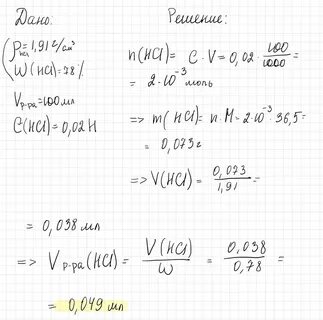 Дано:
ρ нсl = 1,91 г/см³
W (HCl) = 78 %
V р-ра = 100 мл
C(HCl) = 0,02 Н
Решение:
n(HCl) = C · V = 0,02 · 100/1000 =
= 2·10⁻³ моль
=> m(HCl) = n·M = 2·10⁻³ · 36,5 =
= 0,073 г
=> V(HCl) = 0,073/1,91 =
= 0,038 мл
=> V р-ра (HCl) = V(HCl)/W = 0,038/0,78 =
= 0,049 мл